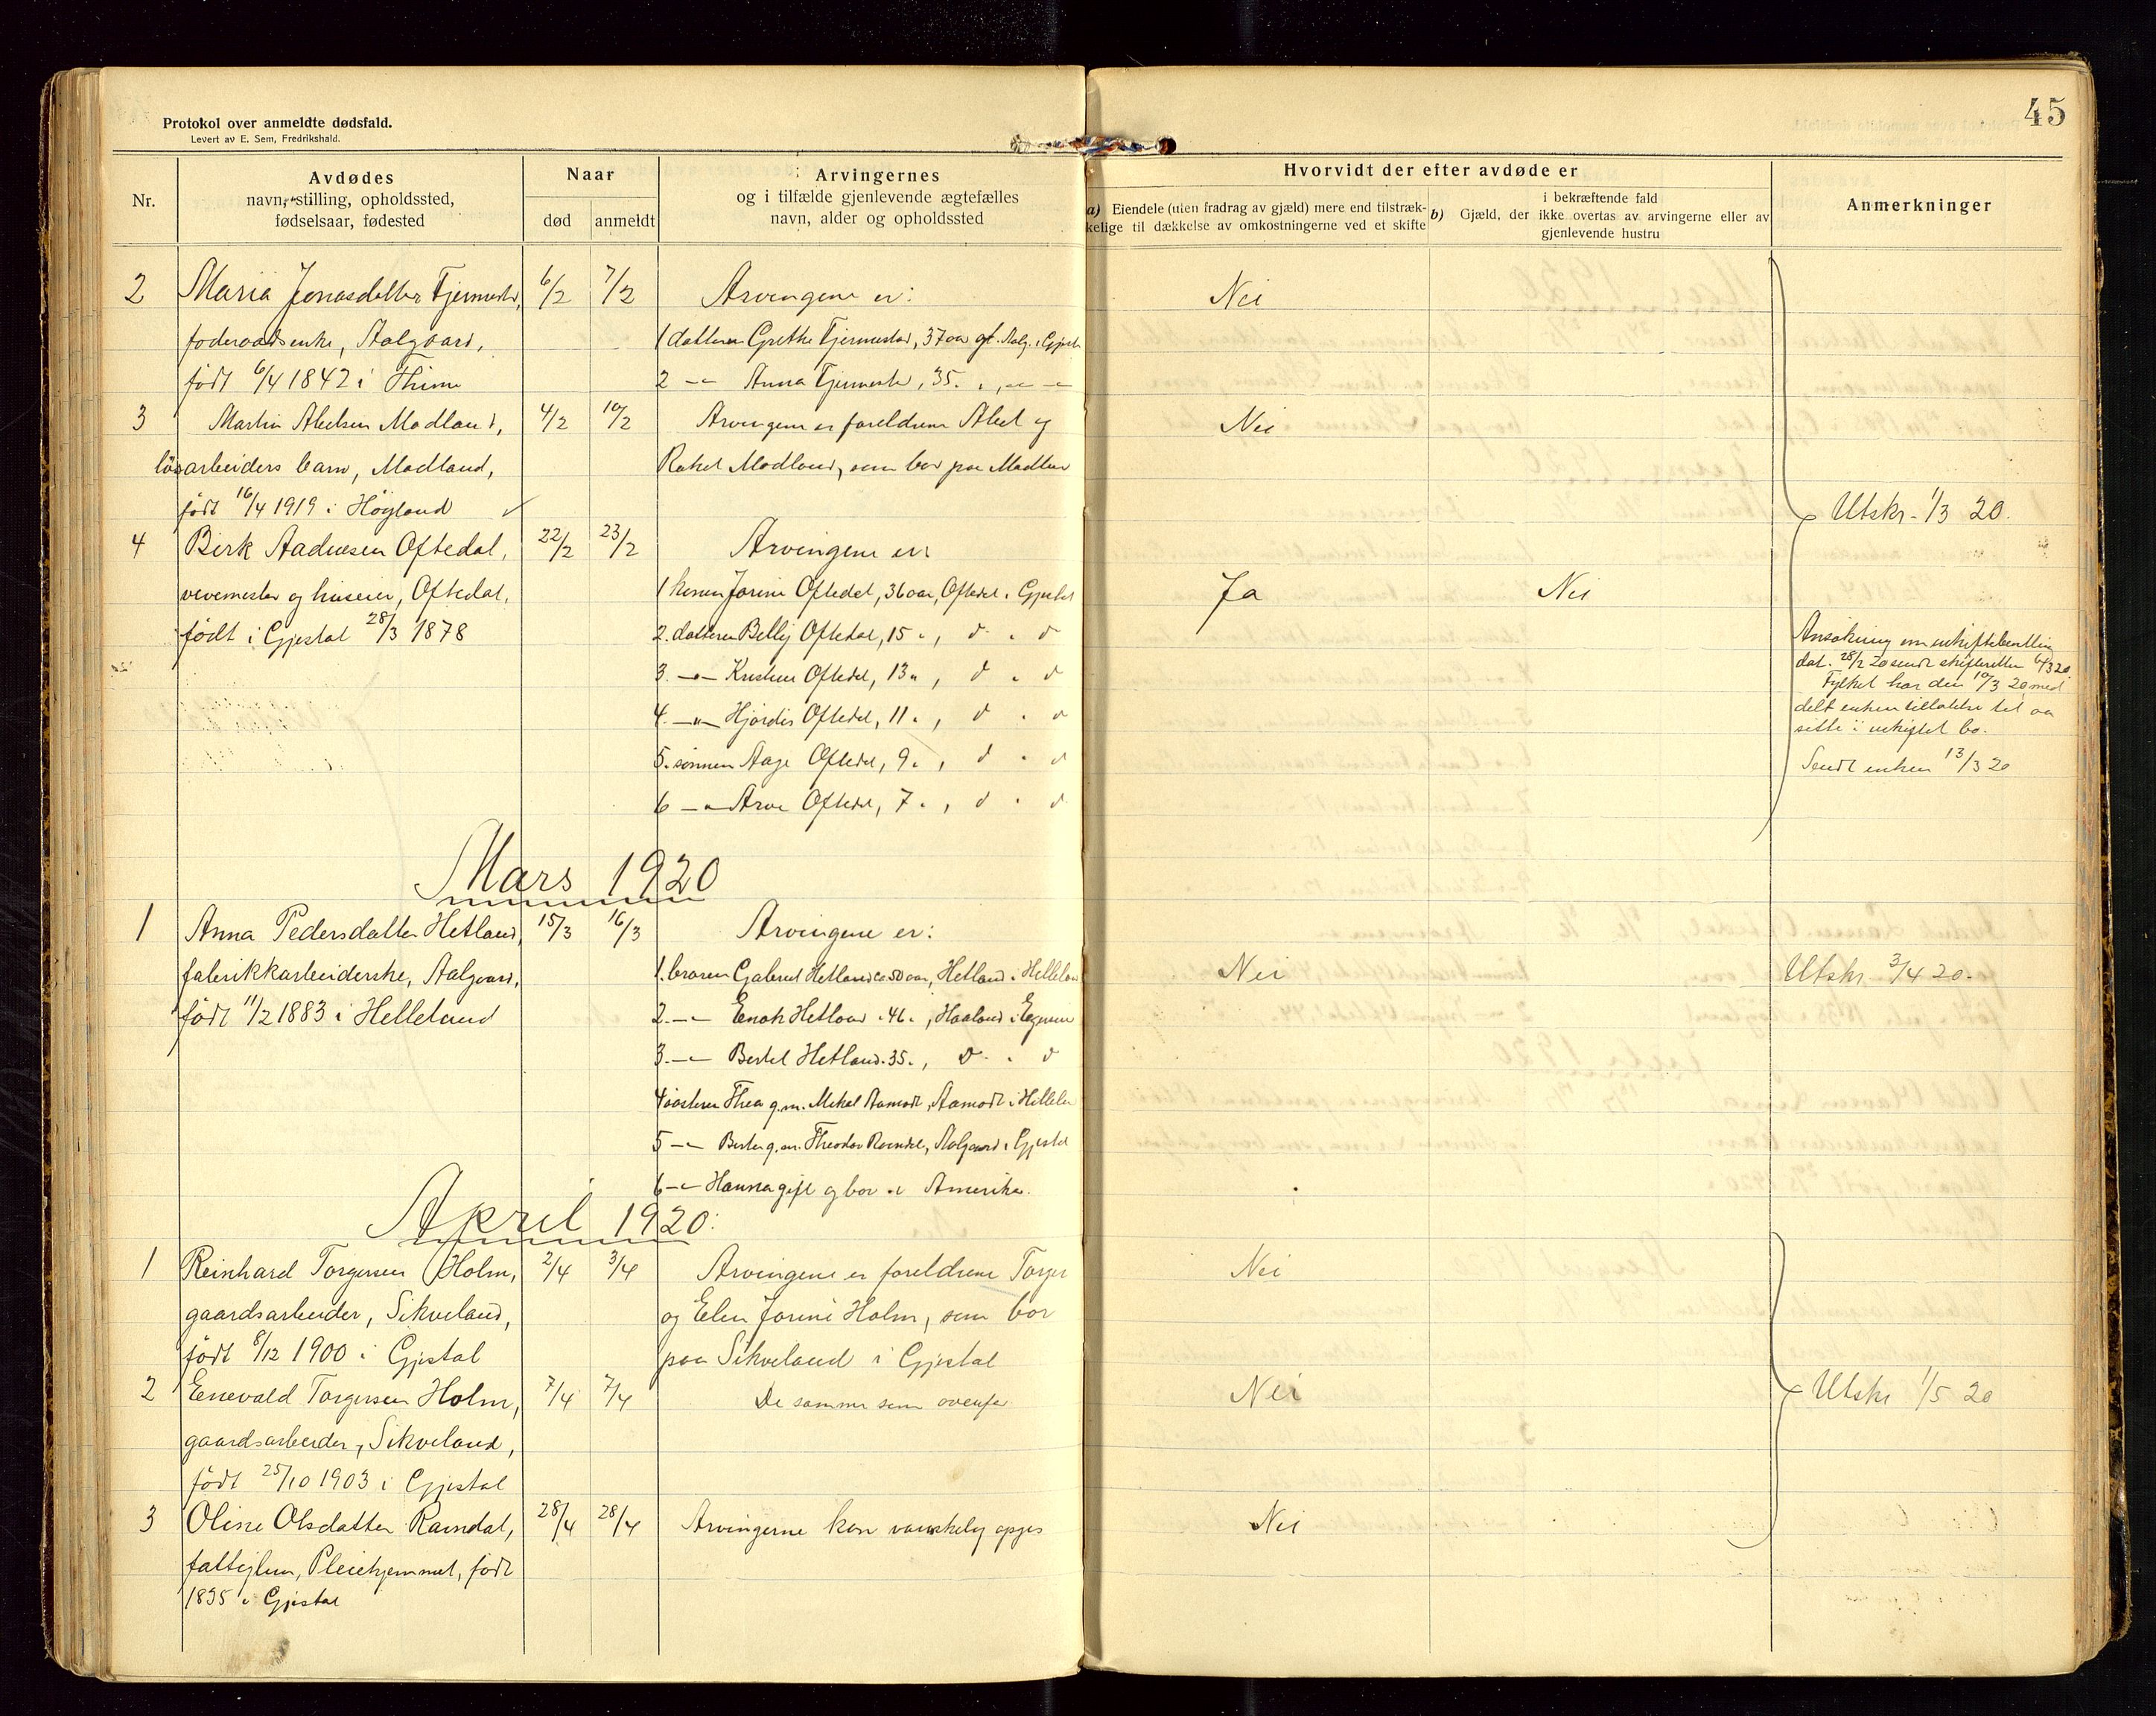 Protokol over anmeldte dødsfald.
Levert av E. Sem, Fredrikshald.
45
Nr.
Avdødes
navn, stilling, opholdssted,
fødselsaar, fødested
Naar
død
anmeldt
Arvingernes
og i tilfælde gjenlevende ægtefælles
navn, alder og opholdssted
Hvorvidt der efter avdøde er
a) Eiendele (uten fradrag av gjæld) mere end tilstræk-
kelige til dækkelse av omkostningerne ved et skifte
i bekræftende fald
b) Gjæld, der ikke overtas av arvingerne eller av
gjenlevende hustru
Anmerkninger
2 Maria Jonasdatter Fjermestad, 6/2 7/2 Arvingene er: Nei
foderaadsenke, Aalgaard, 1 datteren Grethe Fjermestad, 37 aar gl. Aalg. i Gjestal
født 6/4 1842 i Thime 2 -"- Anna Fjermestad, 35 " , -"-
3 Martin Abelsen Modland, 4/2 10/2 Arvingene er foreldrene Abel og Nei
løsarbeiders barn, Modland, Rakel Modland, som bor paa Modland
født 16/4 1919 i Høyland
Utskr. 1/3 20.
4 Birk Aadnesen Oftedal, 22/2 23/2 Arvingene er:
vevemester og huseier, Oftedal, 1 konen Jorine Oftedal, 36 aar, Oftedal i Gjestal Ja Nei
født i Gjestal 28/3 1878 2. datteren Belly Oftedal, 15 ", d " d
3. -"- Kristine Oftedal, 13 ", d " d
4. -"- Hjørdis Oftedal, 11 ", d " d
5. sønnen Aage Oftedal, 9 ", d " d
6 -"- Arve Oftedal, 7 ", d " d
Ansøkning om uskiftebevilling
dat. 28/2 20 sendt skifteretten 6/3 20.
Fylket har den 10/3 20 med
delt enken tillatelse til aa
sitte i uskiftet bo.
Sendt enken 13/3 20
Mars 1920
1 Anna Pedersdatter Hetland, 15/3 16/3 Arvingene er:
fabrikkarbeiderske, Aalgaard, 1. broren Gabriel Hetland ca 50 aar, Hetland i Helleland Nei Utskr. 3/4 20.
født 11/2 1883 i Helleland 2. -"- Enok Hetland " 46 ", Haaland i Egersund
3. -"- Bertel Hetland " 35 ", d " d
4 søsteren Thea g.m. Mikal Aamodt, Aamodt i Helleland
5 -"- Berte g.m. Theodor Ravndal, Aalgaard i Gjestal
6 -"- Hanna gift og bor i Amerika.
April 1920:
1 Reinhard Torgersen Holm, 2/4 3/4 Arvingene er foreldrene Torger Nei
gaardsarbeider, Sikveland, og Elen Jorine Holm, som bor
født 8/12 1900 i Gjestal paa Sikveland i Gjestal
2 Enevald Torgersen Holm, 7/4 7/4 De samme som ovenfor Nei Utskr 1/5 20
gaardsarbeider, Sikveland,
født 25/10 1903 i Gjestal
3 Oline Olsdatter Ravndal, 28/4 28/4 Arvingerne kan vanskelig opgis Nei
fattiglem, Pleiehjemmet, født
1835 i Gjestal